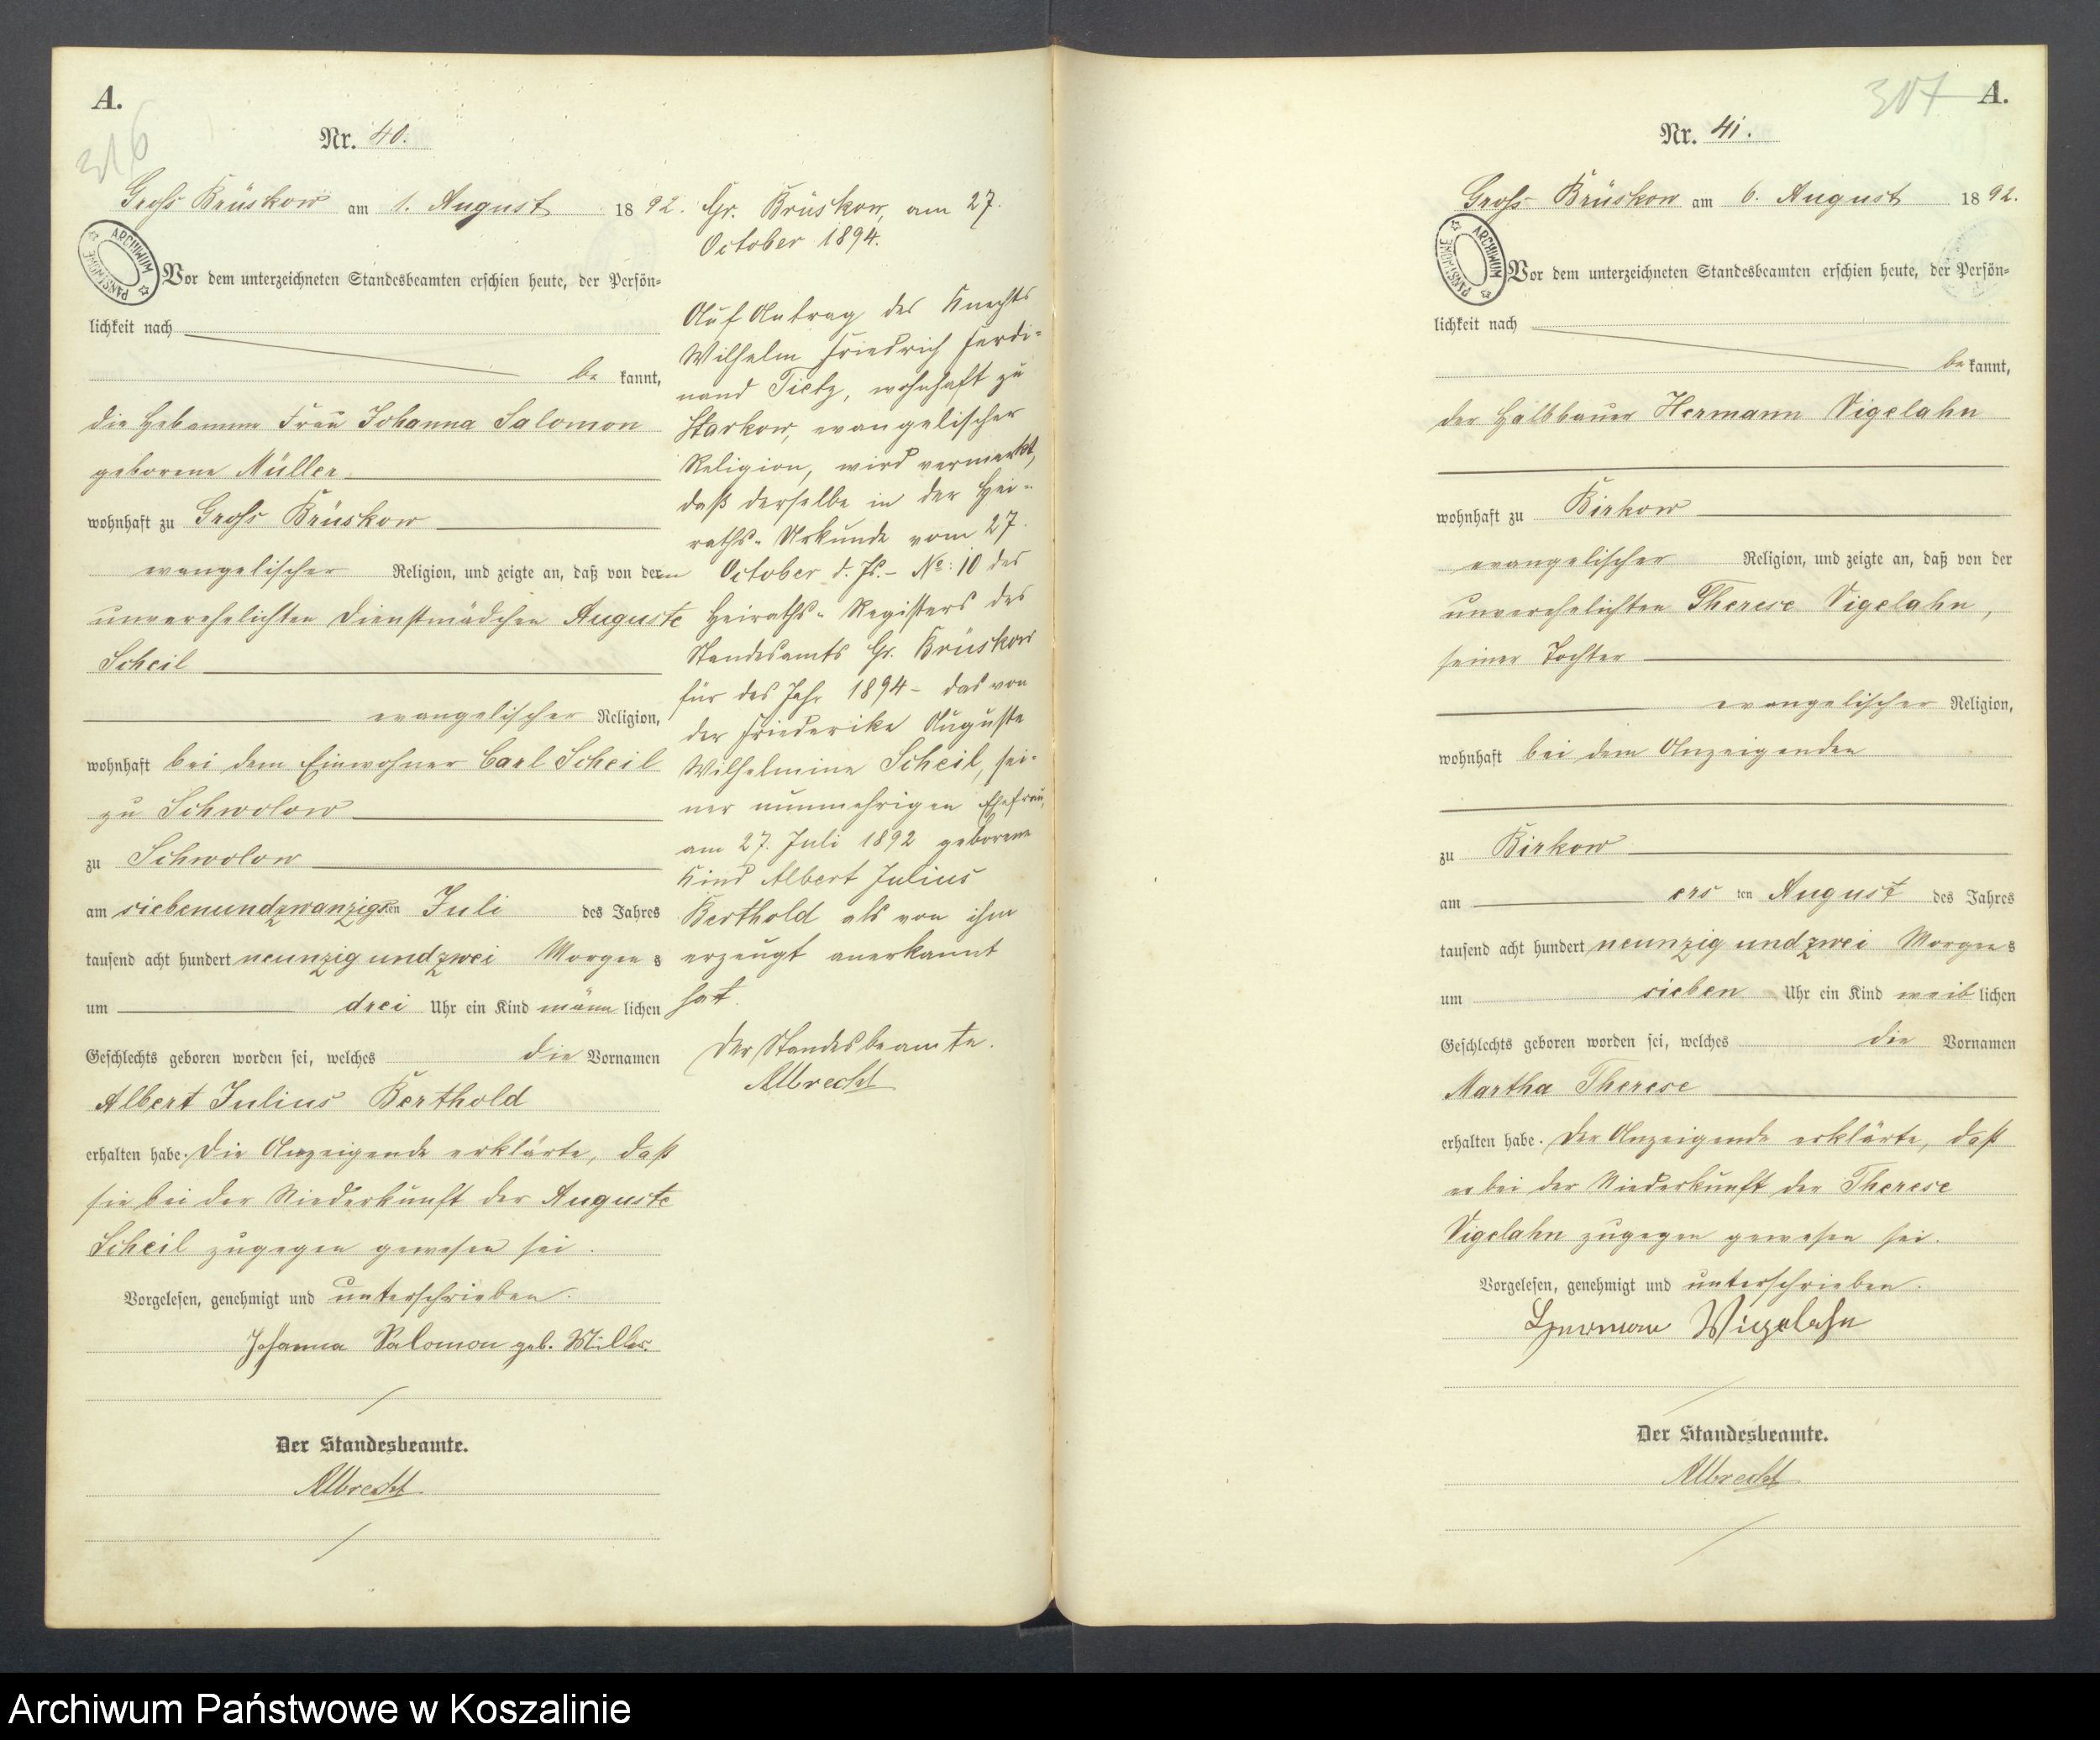 A.
316
Nr. 40.
Groß Brüskow am 1. August 1892.
ARCHIWUM PAŃSTWOWE
Vor dem unterzeichneten Standesbeamten erschien heute, der Persön=
lichkeit nach
be kannt,
die Hebamme Frau Johanna Salomon
geborene Müller
wohnhaft zu Groß Brüskow
evangelischer Religion, und zeigte an, daß von dem
unverehelichten Dienstmädchen Auguste
Scheil
evangelischer Religion,
wohnhaft bei dem Einwohner Carl Scheil
zu Schwolow
zu Schwolow
am siebenundzwanzigsten Juli des Jahres
tausend acht hundert neunzig und zwei Morgens
um drei Uhr ein Kind männlichen
Geschlechts geboren worden sei, welches die Vornamen
Albert Julius Berthold
erhalten habe. Die Anzeigende erklärte, daß
sie bei der Niederkunft der Auguste
Scheil zugegen gewesen sei.
Vorgelesen, genehmigt und unterschrieben.
Johanna Salomon geb. Müller.
Der Standesbeamte.
Albrecht
Gr. Brüskow, am 27.
October 1894.
Auf Antrag des Knechts
Wilhelm Friedrich Ferdi=
nand Tietz, wohnhaft zu
Starkow, evangelischer
Religion, wird vermerkt,
daß derselbe in der Hei=
raths=Urkunde vom 27.
October d. Js. – No: 10 des
Heiraths=Registers des
Standesamts Gr. Brüskow
für das Jahr 1894 – das von
der Friederike Auguste
Wilhelmine Scheil, sei=
ner nunmehrigen Ehefrau,
am 27. Juli 1892 geborene
Kind Albert Julius
Berthold als von ihm
erzeugt anerkannt
hat.
Der Standesbeamte.
Albrecht
307 A.
Nr. 41.
Groß Brüskow am 6. August 1892.
ARCHIWUM PAŃSTWOWE
Vor dem unterzeichneten Standesbeamten erschien heute, der Persön=
lichkeit nach
bekannt,
der Halbbauer Hermann Vigelahn
wohnhaft zu Birkow
evangelischer Religion, und zeigte an, daß von der
unverehelichten Therese Vigelahn,
seiner Tochter
evangelischer Religion,
wohnhaft bei dem Anzeigenden
zu Birkow
am ersten August des Jahres
tausend acht hundert neunzig und zwei Morgens
um sieben Uhr ein Kind weiblichen
Geschlechts geboren worden sei, welches die Vornamen
Martha Therese
erhalten habe. Der Anzeigende erklärte, daß
er bei der Niederkunft der Therese
Vigelahn zugegen gewesen sei.
Vorgelesen, genehmigt und unterschrieben.
Hermann Wigelahn
Der Standesbeamte.
Albrecht
Archiwum Państwowe w Koszalinie